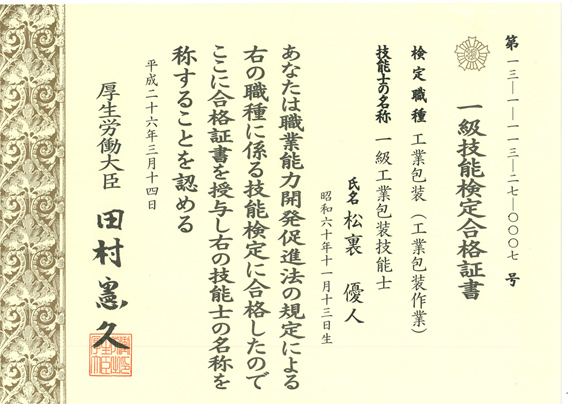 第一三―一―一一三―二七―〇〇〇七号
一級技能検定合格証書
検定職種 工業包装（工業包装作業）
技能士の名称 一級工業包装技能士
氏名 松裏 優人
昭和六十年十一月十三日生
あなたは職業能力開発促進法の規定による
右の職種に係る技能検定に合格したので
ここに合格証書を授与し右の技能士の名称を
称することを認める
平成二十六年三月十四日
厚生労働大臣 田村憲久